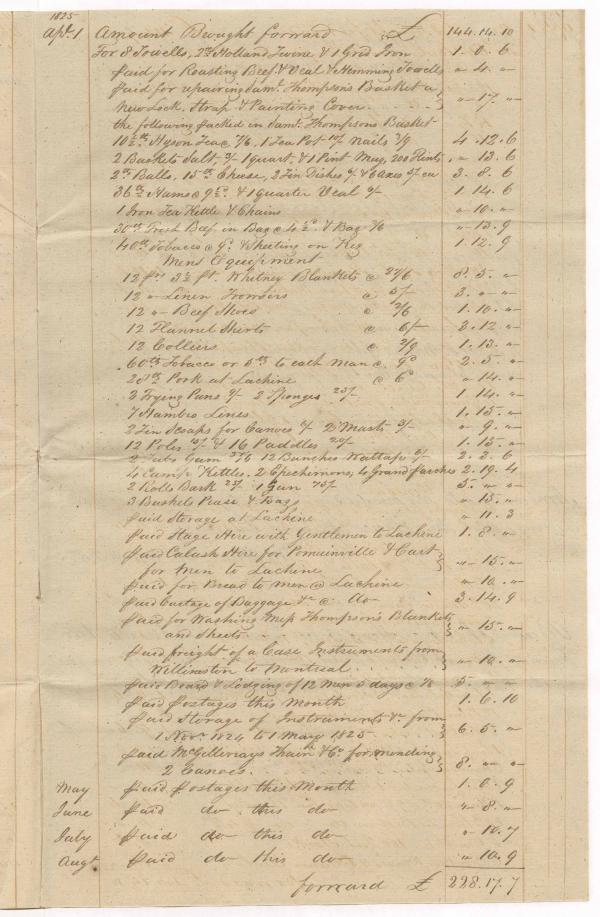 1825
Apl. 1 Amount Brought forward £ 144.14.10
For 8 Towells, 2lb Holland Twine & 1 Grid Iron 1.0.6
paid for Roasting Beef & Veal & Hemming Towells " 4. "
paid for repairing Saml. Thompson's Basket a
New Lock, Strap & Painting Cover " 17. "
the following packed in Saml. Thompsons Basket
10½lb Hyson Tea @ 7/6, 1 Tea Pot 10/ Nails 3/9 4.12.6
2 Baskets Salt, 1 quart & 1 Pint Mug, 200 Flints " 13.6
2 Balls, 15lb Cheese, 2 Tin Dishes 3.8.6
36½lb Hams @ & 1 Quarter Veal 1.14.6
1 Iron Tea Kettle & Chains " 10. "
30lb Fresh Beef in Bag @ 4½d. & Bag " 13.9
40lb Tobacco @ 9d. & Sheeting on Keg 1.12.9
Mens Equipment
12 prs 3½ pt. Whitney Blankets @ 8.5. "
12 " Linen Trowsers @ 5/ 3. " "
12 " Beef Shoes @ 2/6 1.10. "
12 Flannel Shirts @ 6/ 3.12. "
12 Colliers @ 2/9 1.13. "
60lb Tobacco or 5lb to each Man @ 9d 2.5. "
28lb Pork at Lachine @ 6d " 14. "
2 Frying Pans 2 Sponges 1.14. "
7 Hambro Lines 1.15. "
2 Tin Scoops for Canoes 2 Masts " 9. "
12 Poles 15/ & 16 Paddles 20/ 1.15. "
Tubs Gum 12 Bunches Wattap 2.2.6
4 Camp Kettles, 2 Epechimons, 4 Grand perches 2.19.4
2 Rolls Bark 25/ 1 Gun 75/ 5. " "
3 Buskels Pease & Bags " 15. "
paid Storage at Lachine " 11.3
paid Stage Hire with Gentlemen to Lachine 1.8. "
paid Calash Hire for Pomainville & Cart
for Men to Lachine " 15. "
paid for Bread to Men @ Lachine " 10. "
paid Cartage of Baggage &c @ do 3.14.9
paid for Washing Messrs Thompson's Blankets
and Sheets " 15. "
paid freight of a Case Instruments from
Williston to Montreal " 10. "
paid Board & Lodging of 12 Men 5 days @ 5. " "
paid Postages this Month 1.6.10
paid Storage of Instruments &c from
1 Novr. 1824 to 1 May 1825 6.5. "
paid McGillivrays Thain & Co. for mending
2 Canoes 8. " "
May paid Postages this Month 1.0.9
June paid do this do " 8. "
July paid do this do " 10.7
Augt paid do this do " 10.9
forward £ 228.17.7